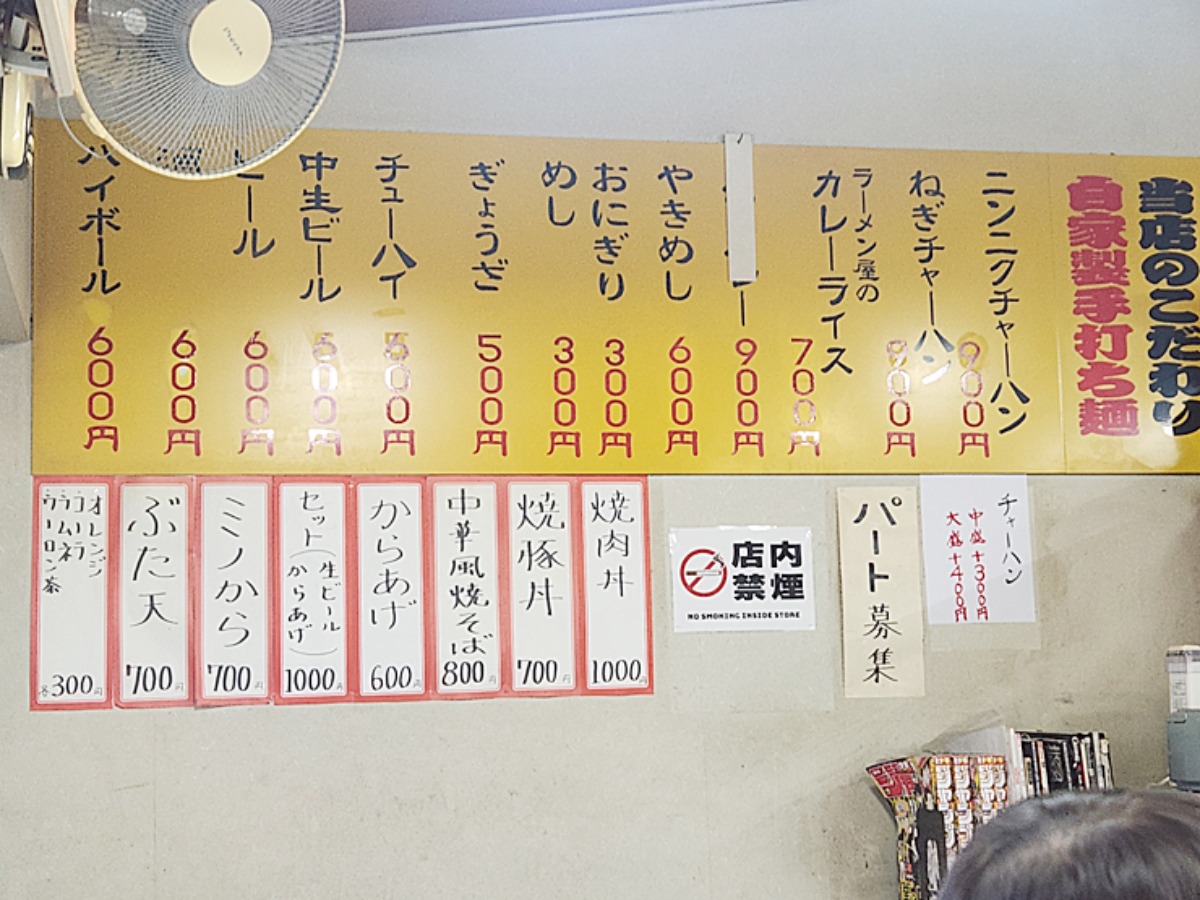 当店のこだわり
自家製手打ち麺
ニンニクチャーハン 900円
ねぎチャーハン 900円
ラーメン屋の
カレーライス 700円
900円
やきめし 600円
おにぎり 300円
めし 300円
ぎょうざ 500円
チューハイ 500円
中生ビール 600円
ビール 600円
600円
ハイボール 600円
チャーハン
中盛+300円
大盛+400円
パート募集
店内
禁煙
NO SMOKING INSIDE STORE
焼肉丼 1000円
焼豚丼 700円
中華風焼そば 800円
からあげ 600円
セット(生ビール
からあげ) 1000円
ミノから 700円
ぶた天 700円
オレンジ
コーラ
ラムネ
ウーロン茶
各300円